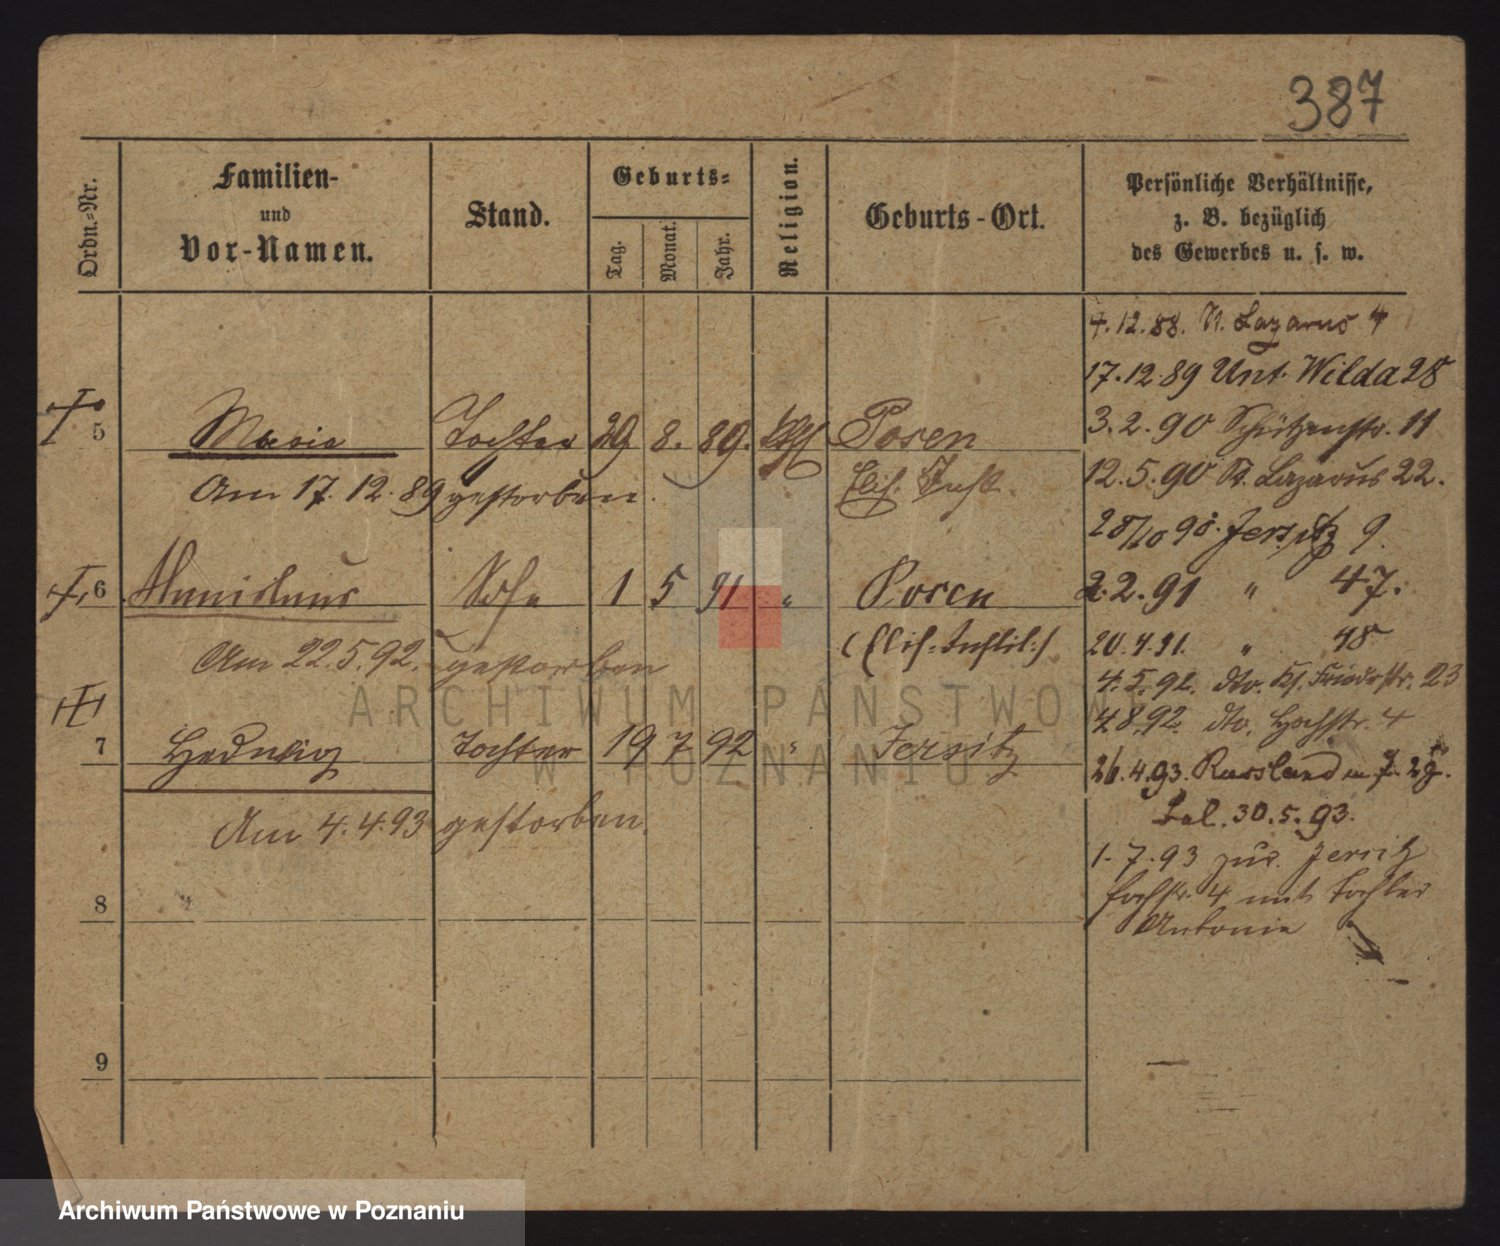 387
Ordn.-Nr.
Familien-
und
Vor-Namen.
Stand.
Geburts-
Tag.
Monat.
Jahr.
Religion.
Geburts-Ort.
Persönliche Verhältnisse,
z. B. bezüglich
des Gewerbes u. s. w.
4.12.88. St. Lazarus 4
17.12.89 Unt. Wilda 28
3.2.90 Schützenstr. 11
12.5.90 St. Lazarus 22.
28/10 90. Jersitz 9.
2.2.91 " 47.
20.4.91. " 48
4.5.92. dto. Kl. Friedrstr. 23
4.8.92. dto. Hochstr. 4
26.4.93. Russland
30.5.93.
1.7.93 zur. Jersitz
Hochstr. 4 mit Tochter
Antonie
5 Marie Tochter 29 8. 89. Posen
Am 17.12.89 gestorben.
6 Stanislaus Sohn 1 5 91 " Posen
Am 22.5.92. gestorben
7 Hedwig Tochter 19 7 92 " Jersitz
Am 4.4.93 gestorben.
8
9
ARCHIWUM PAŃSTWOWE
W POZNANIU
Archiwum Państwowe w Poznaniu